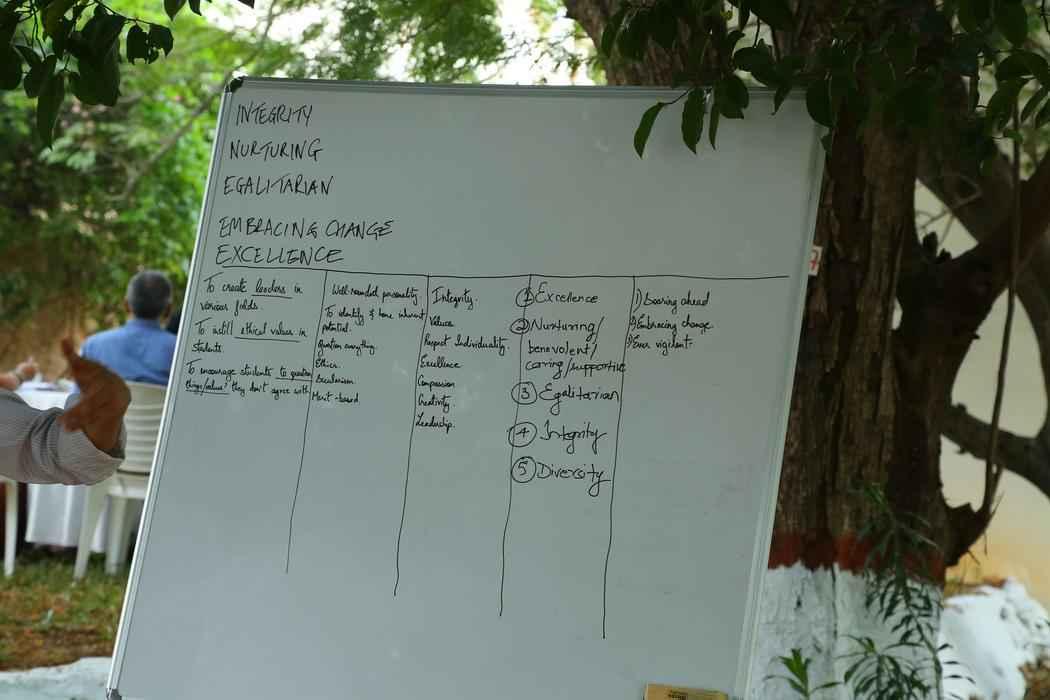 INTEGRITY
NURTURING
EGALITARIAN
EMBRACING CHANGE
EXCELLENCE
To create leaders in
various fields
To instill ethical values in
students.
To encourage students to question
things/values they don't agree with
Well-rounded personality.
To identify & hone inherent
potential.
Question everything.
Ethics.
Secularism.
Merit-based
Integrity.
Values
Respect Individuality.
Excellence
Compassion
Creativity
Leadership.
① Excellence
② Nurturing/
benevolent/
caring/supportive
③ Egalitarian
④ Integrity
⑤ Diversity
1) Soaring ahead
2) Embracing change
3) Ever vigilant.